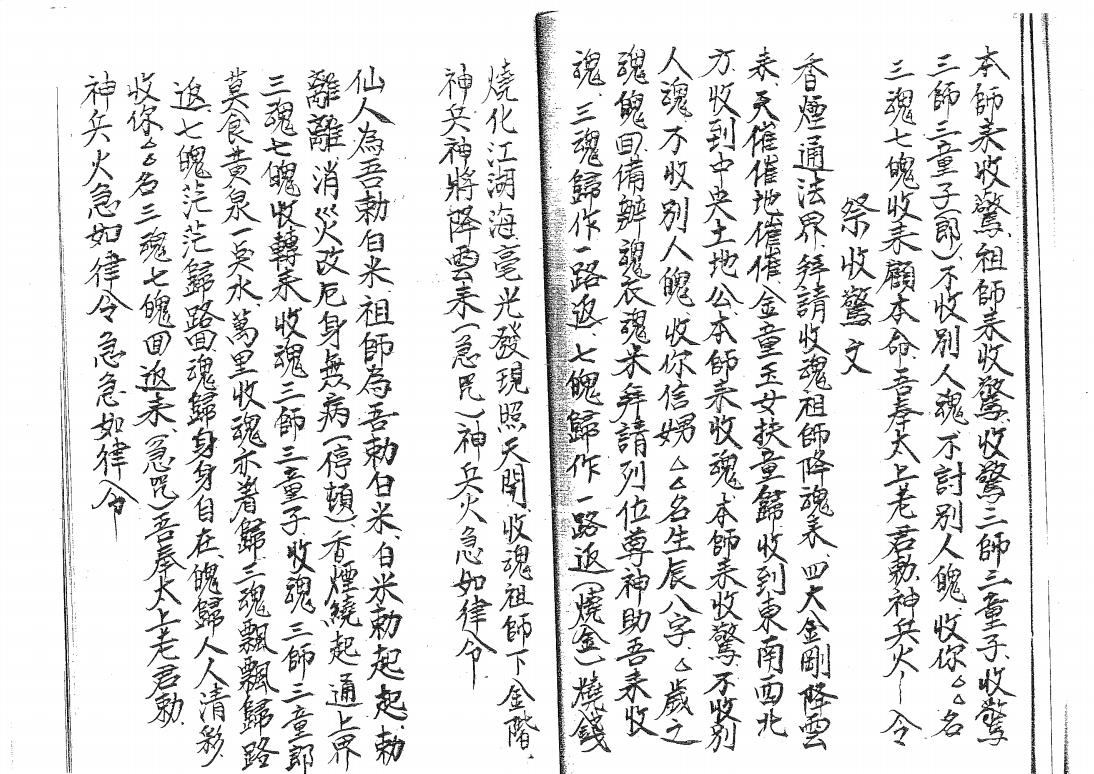 本師来收驚、祖師来收驚、收驚三師三童子、收驚
三師三童子(郎)、不收別人魂、不討別人魄、收你△△名
三魂七魄收来顧本命、吾奉太上老君勅、神兵火〡令
祭收驚文
香煙通法界、拜請收魂祖師降魂来、四大金剛降雲
来、天催催地催催、金童玉女扶童歸、收到東南西北
方、收到中央土地公、本師来收魂、本師来收驚、不收別
人魂、不收別人魄、收你信娚△△名生辰八字、△歲之
魂魄、回備辦魂衣魂米、拜請列位尊神助吾来收
魂、三魂歸作一路返、七魄歸作一路返(燒金)燒錢
燒化江湖海毫光發現照天開收魂祖師下金階、
神兵神將降雲来(急咒)神兵火急如律令
仙人為吾勅白米、祖師為吾勅白米、白米勅起起勅
離離、消災改厄身無病(停頓)、香煙繞起通上界
三魂七魄收轉来、收魂三師三童子、收魂三師三童郎
莫食黃泉一点水、萬里收魂亦着歸、三魂飄飄歸路
返、七魄茫茫歸路回、魂歸身身自在、魄歸人人清彩、
收你△△名三魂七魄回返来、(急咒)吾奉太上老君勅、
神兵火急如律令急急如律令